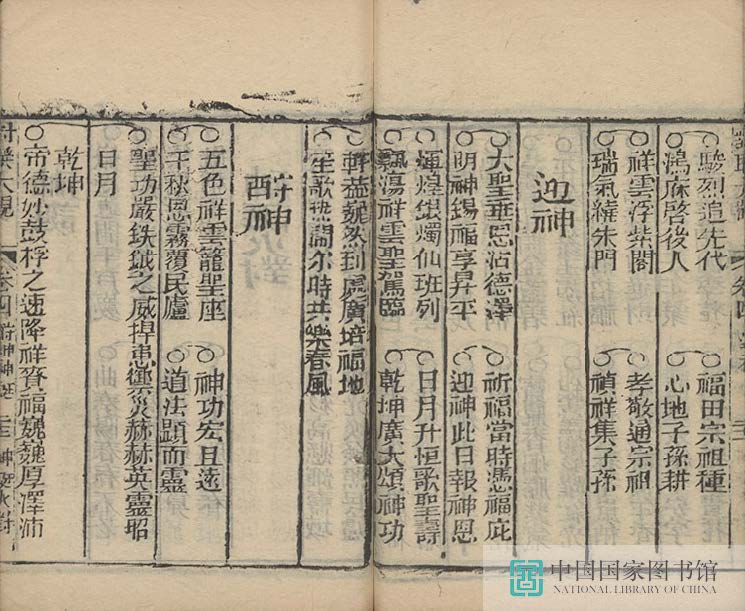 駿烈追先代 福田宗祖種
鴻庥啓後人 心地子孫耕
祥雲浮紫閣 孝敬通宗祖
瑞氣繞朱門 禎祥集子孫
迎神
大聖垂恩沾德澤 祈福當時憑福庇
明神錫福享昇平 迎神此日報神恩
輝煌銀燭仙班列 日月升恒歌聖壽
飄蕩祥雲聖駕臨 乾坤廣大頌神功
蓋巍然到處廣培福地
笙歌鬧尔時共樂春風
酧神
五色祥雲籠聖座 神功宏且遠
千秋恩霧覆民廬 道法顯而靈
聖功嚴鈇鉞之威捍患禦災赫赫英靈昭
日月
乾坤
帝德妙鼓桴之速降祥賚福巍巍厚澤沛
卷四
中国国家图书馆
NATIONAL LIBRARY OF CHINA